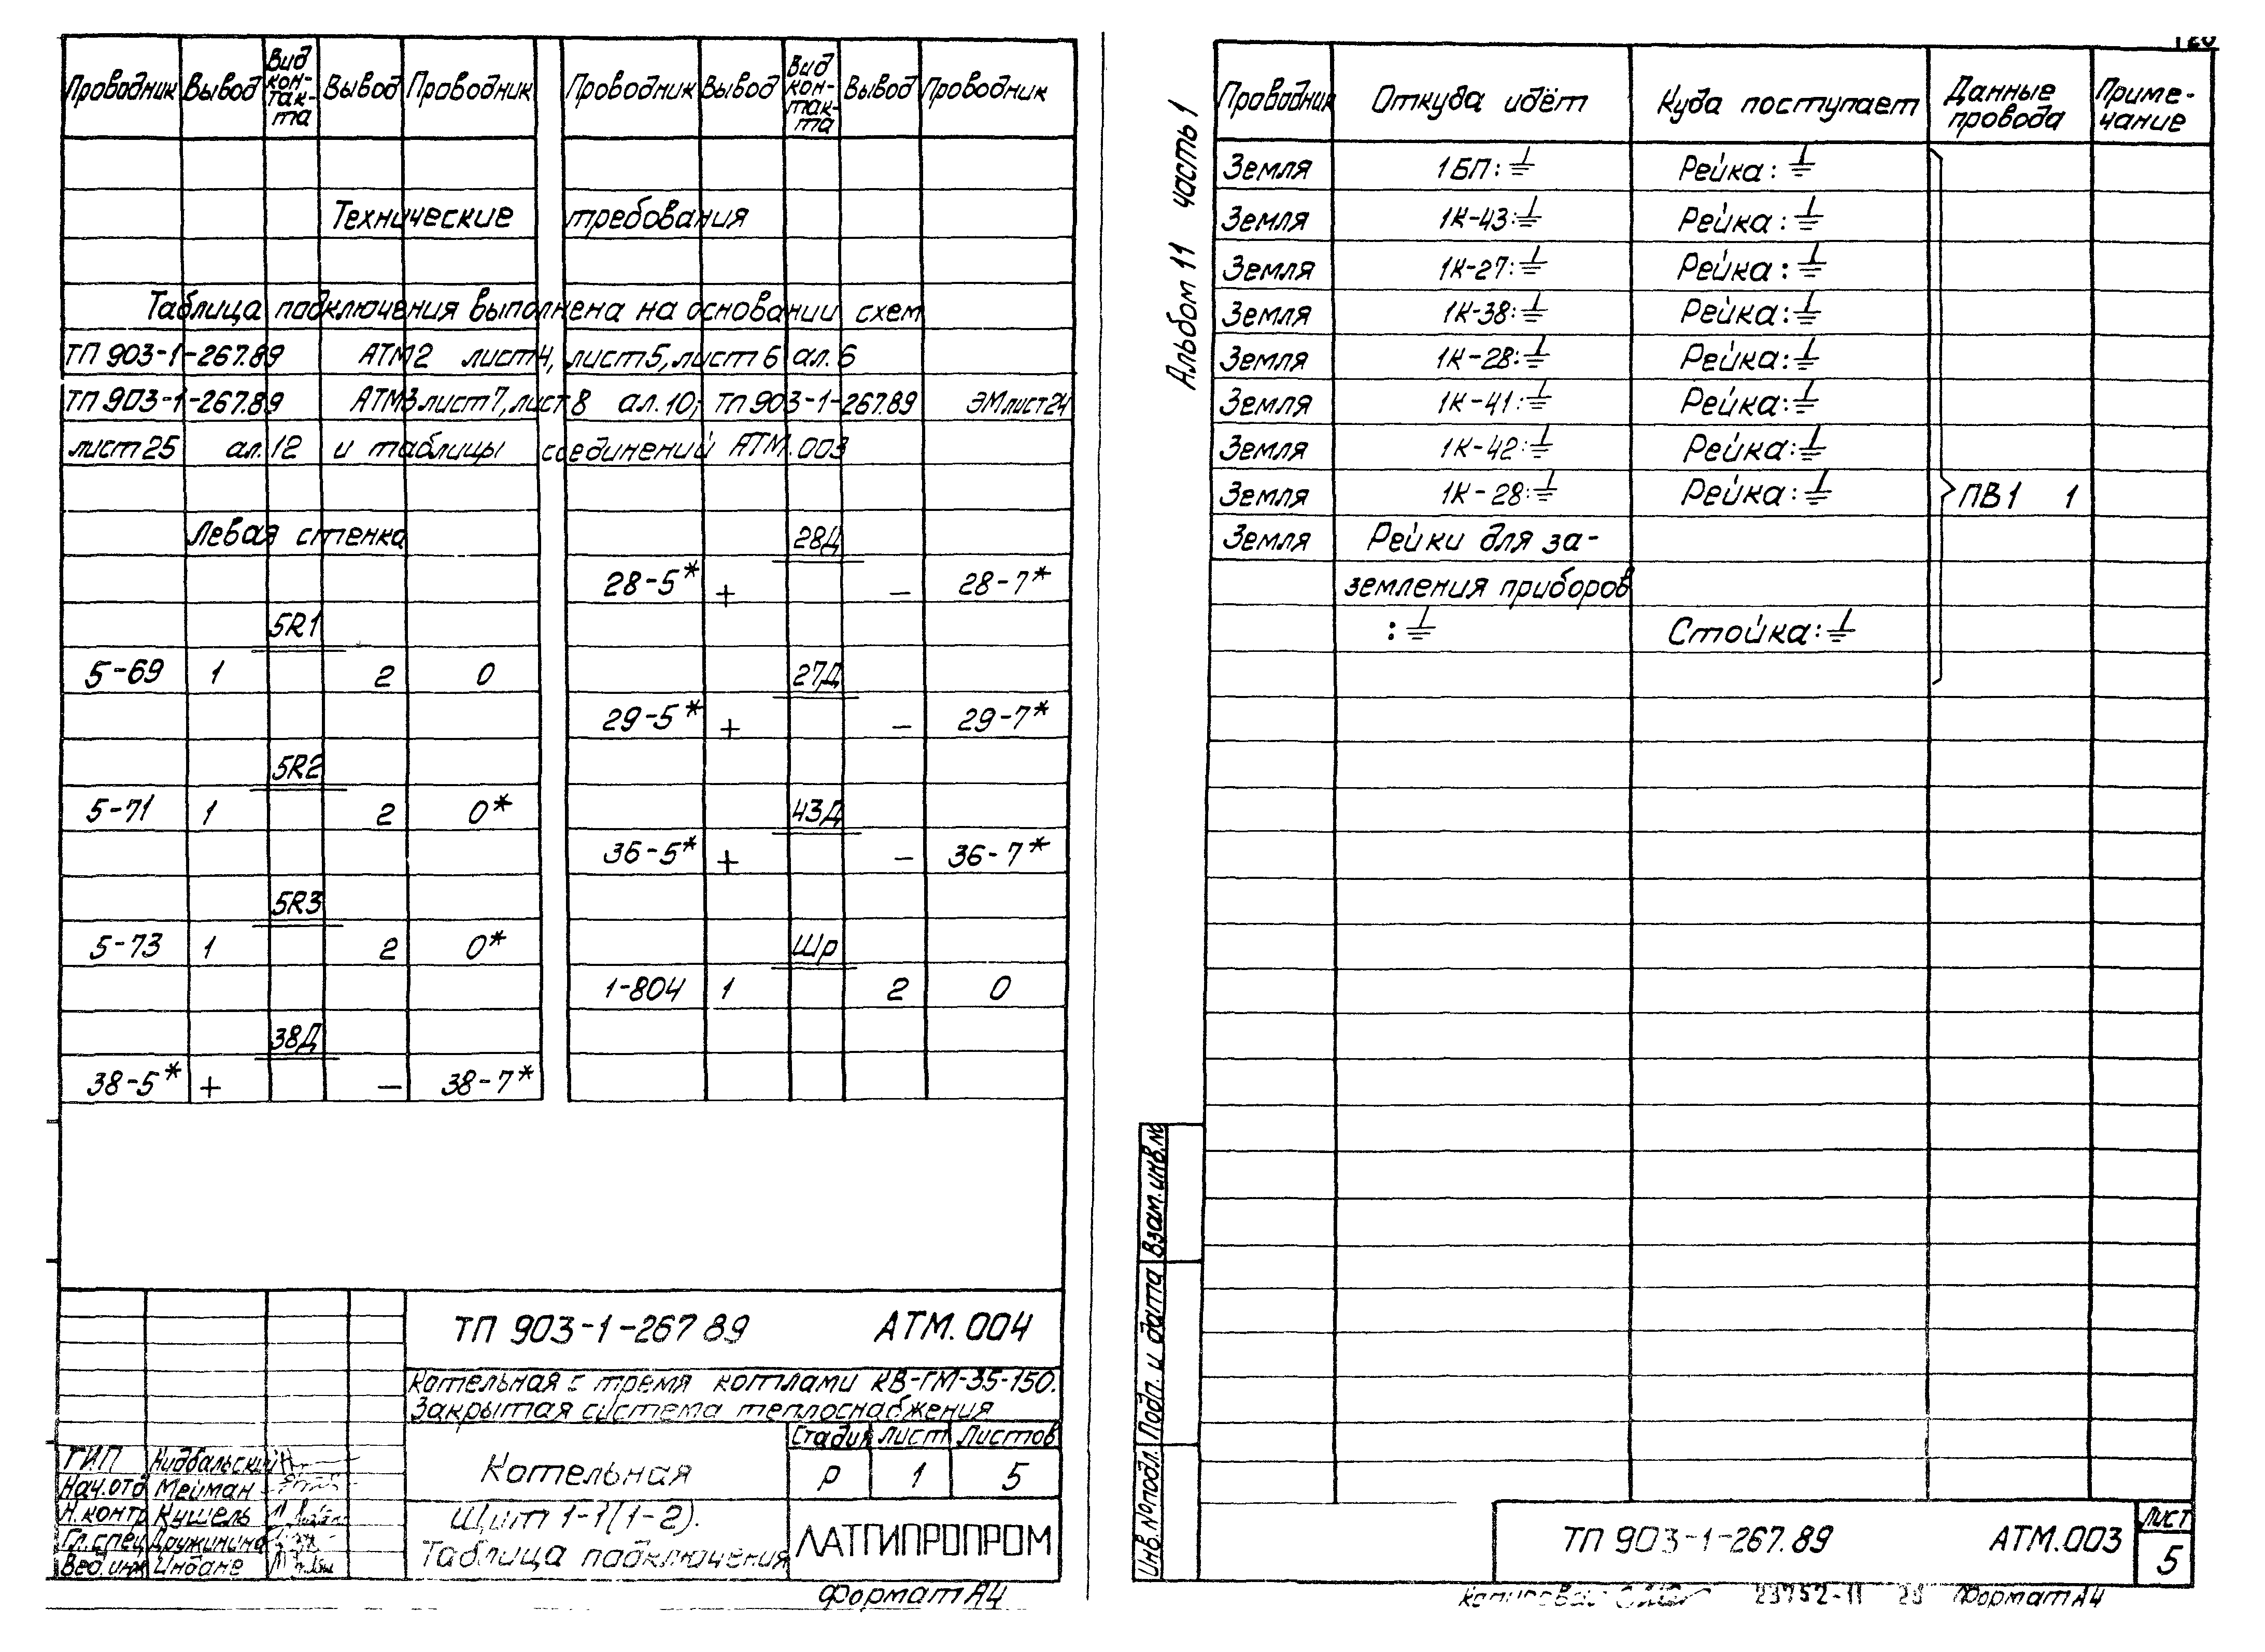 Проводник Вывод Вид контакта Вывод Проводник Проводник Вывод Вид контакта Вывод Проводник
Технические требования
Таблица подключения выполнена на основании схем
ТП 903-1-267.89 АТМ2 лист4, лист5, лист6 ал. 6
ТП 903-1-267.89 АТМ3 лист7, лист 8 ал. 10; ТП 903-1-267.89 ЭМ лист24
лист 25 ал. 12 и таблицы соединений АТМ.003
Левая стенка
5R1
5-69 1 2 0
5R2
5-71 1 2 0*
5R3
5-73 1 2 0*
38Д
38-5* + − 38-7*
28Д
28-5* + − 28-7*
27Д
29-5* + − 29-7*
43Д
36-5* + − 36-7*
Шр
1-804 1 2 0
ТП 903-1-267 89 АТМ.004
Котельная с тремя котлами КВ-ГМ-35-150.
Закрытая система теплоснабжения
Стадия Лист Листов
Котельная Р 1 5
Щит 1-1(1-2).
Таблица подключения
ЛАТГИПРОПРОМ
ГИП
Нач.отд Мейман
Н.контр Кушель
Гл.спец Дружинина
Вед.инж Инбане
Формат А4
Альбом 11 часть 1
Проводник Откуда идёт Куда поступает Данные провода Примечание
Земля 1БП:⏚ Рейка:⏚
Земля 1К-43:⏚ Рейка:⏚
Земля 1К-27:⏚ Рейка:⏚
Земля 1К-38:⏚ Рейка:⏚
Земля 1К-28:⏚ Рейка:⏚
Земля 1К-41:⏚ Рейка:⏚
Земля 1К-42:⏚ Рейка:⏚
Земля 1К-28:⏚ Рейка:⏚ ПВ1 1
Земля Рейки для за-
земления приборов
:⏚ Стойка:⏚
Инв.№подл. Подп. и дата Взам.инв.№
ТП 903-1-267.89 АТМ.003
Лист
5
23752-11 Формат А4